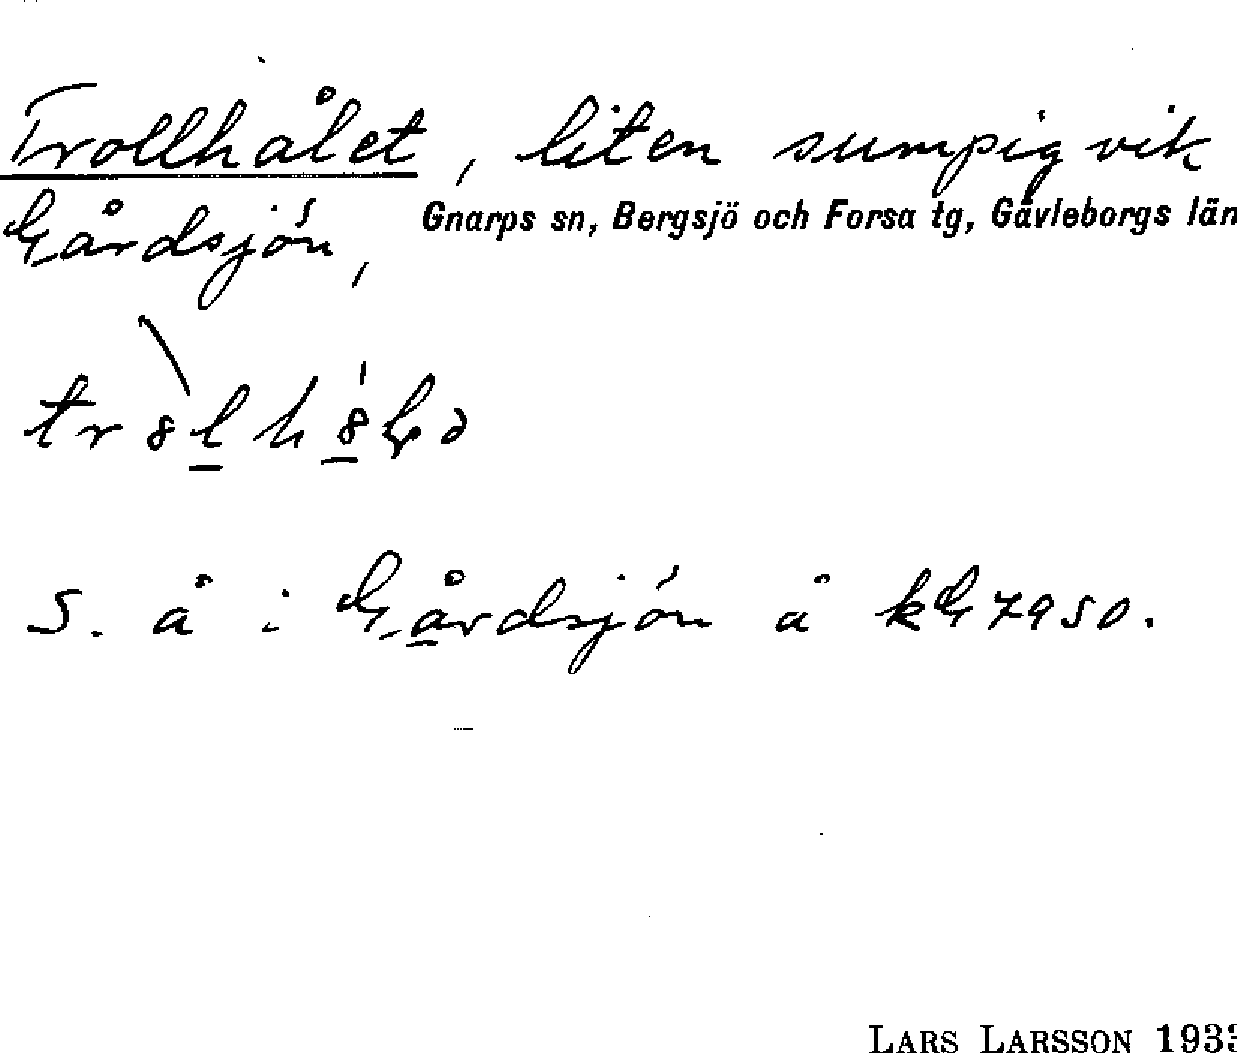 Trollhålet, liten sumpig vik
Gårdsjön,
Gnarps sn, Bergsjö och Forsa tg, Gävleborgs län
S. å i Gårdsjön å kG 7950.
LARS LARSSON